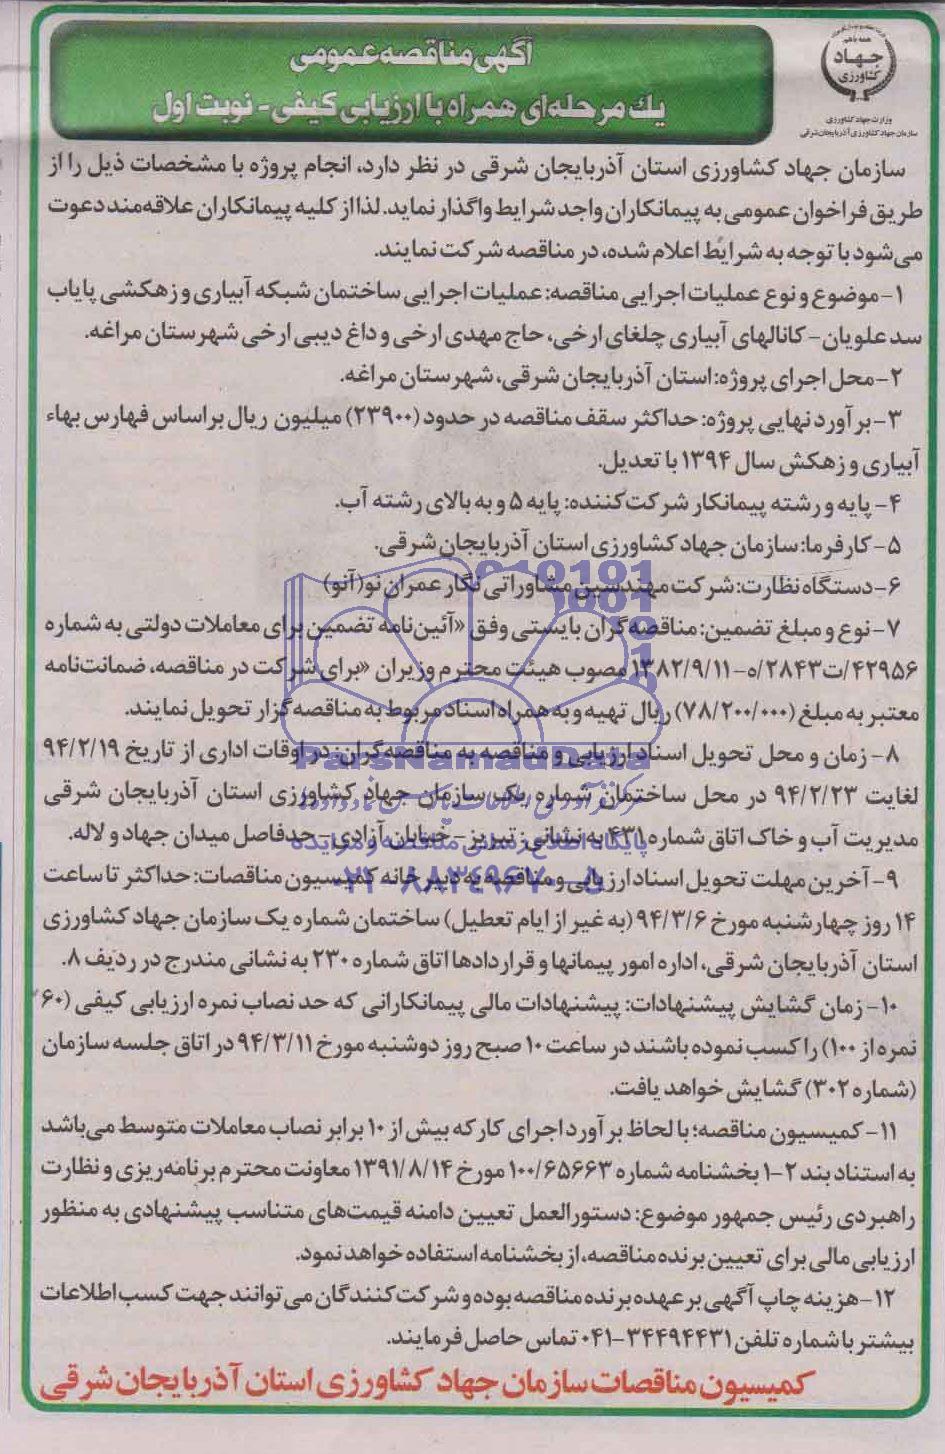 آگهی مناقصه عمومی
یک مرحله‌ای همراه با ارزیابی کیفی - نوبت اول
همه باهم
جهاد
کشاورزی
وزارت جهاد کشاورزی
سازمان جهاد کشاورزی آذربایجان شرقی
سازمان جهاد کشاورزی استان آذربایجان شرقی در نظر دارد، انجام پروژه با مشخصات ذیل را از
طریق فراخوان عمومی به پیمانکاران واجد شرایط واگذار نماید. لذا از کلیه پیمانکاران علاقه‌مند دعوت
می‌شود با توجه به شرایط اعلام شده، در مناقصه شرکت نمایند.
۱- موضوع و نوع عملیات اجرایی مناقصه: عملیات اجرایی ساختمان شبکه آبیاری و زهکشی پایاب
سد علویان - کانالهای آبیاری چلغای ارخی، حاج مهدی ارخی و داغ دیبی ارخی شهرستان مراغه.
۲- محل اجرای پروژه: استان آذربایجان شرقی، شهرستان مراغه.
۳- برآورد نهایی پروژه: حداکثر سقف مناقصه در حدود (۲۳۹۰۰) میلیون ریال براساس فهارس بهاء
آبیاری و زهکش سال ۱۳۹۴ با تعدیل.
۴- پایه و رشته پیمانکار شرکت‌کننده: پایه ۵ و به بالای رشته آب.
۵- کارفرما: سازمان جهاد کشاورزی استان آذربایجان شرقی.
۶- دستگاه نظارت: شرکت مهندسین مشاوراتی نگار عمران نو (آنو)
۷- نوع و مبلغ تضمین: مناقصه‌گران بایستی وفق «آئین‌نامه تضمین برای معاملات دولتی به شماره
۴۲۹۵۶/ت۲۸۴۳/ه-۱۳۸۲/۹/۱۱ مصوب هیئت محترم وزیران «برای شرکت در مناقصه، ضمانت‌نامه
معتبر به مبلغ (۷۸/۲۰۰/۰۰۰) ریال تهیه و به همراه اسناد مربوط به مناقصه‌گزار تحویل نمایند.
۸- زمان و محل تحویل اسناد ارزیابی و مناقصه به مناقصه‌گران: در اوقات اداری از تاریخ ۹۴/۲/۱۹
لغایت ۹۴/۲/۲۳ در محل ساختمان شماره یک سازمان جهاد کشاورزی استان آذربایجان شرقی
مدیریت آب و خاک اتاق شماره ۴۳۱ به نشانی: تبریز - خیابان آزادی - حدفاصل میدان جهاد و لاله.
۹- آخرین مهلت تحویل اسناد ارزیابی و مناقصه به دبیرخانه کمیسیون مناقصات: حداکثر تا ساعت
۱۴ روز چهارشنبه مورخ ۹۴/۳/۶ (به غیر از ایام تعطیل) ساختمان شماره یک سازمان جهاد کشاورزی
استان آذربایجان شرقی، اداره امور پیمانها و قراردادها اتاق شماره ۲۳۰ به نشانی مندرج در ردیف ۸.
۱۰- زمان گشایش پیشنهادات: پیشنهادات مالی پیمانکارانی که حد نصاب نمره ارزیابی کیفی (۶۰
نمره از ۱۰۰) را کسب نموده باشند در ساعت ۱۰ صبح روز دوشنبه مورخ ۹۴/۳/۱۱ در اتاق جلسه سازمان
(شماره ۳۰۲) گشایش خواهد یافت.
۱۱- کمیسیون مناقصه؛ با لحاظ برآورد اجرای کار که بیش از ۱۰ برابر نصاب معاملات متوسط می‌باشد
به استناد بند ۲-۱ بخشنامه شماره ۱۰۰/۶۵۶۶۳ مورخ ۱۳۹۱/۸/۱۴ معاونت محترم برنامه‌ریزی و نظارت
راهبردی رئیس جمهور موضوع: دستورالعمل تعیین دامنه قیمت‌های متناسب پیشنهادی به منظور
ارزیابی مالی برای تعیین برنده مناقصه، از بخشنامه استفاده خواهد نمود.
۱۲- هزینه چاپ آگهی بر عهده برنده مناقصه بوده و شرکت‌کنندگان می‌توانند جهت کسب اطلاعات
بیشتر با شماره تلفن ۳۴۴۹۴۴۳۱-۰۴۱ تماس حاصل فرمایند.
کمیسیون مناقصات سازمان جهاد کشاورزی استان آذربایجان شرقی
ParsNamadData
پایگاه اطلاع رسانی مناقصه و مزایده
۰۲۱-۸۸۳۴۹۶۷۰-۵